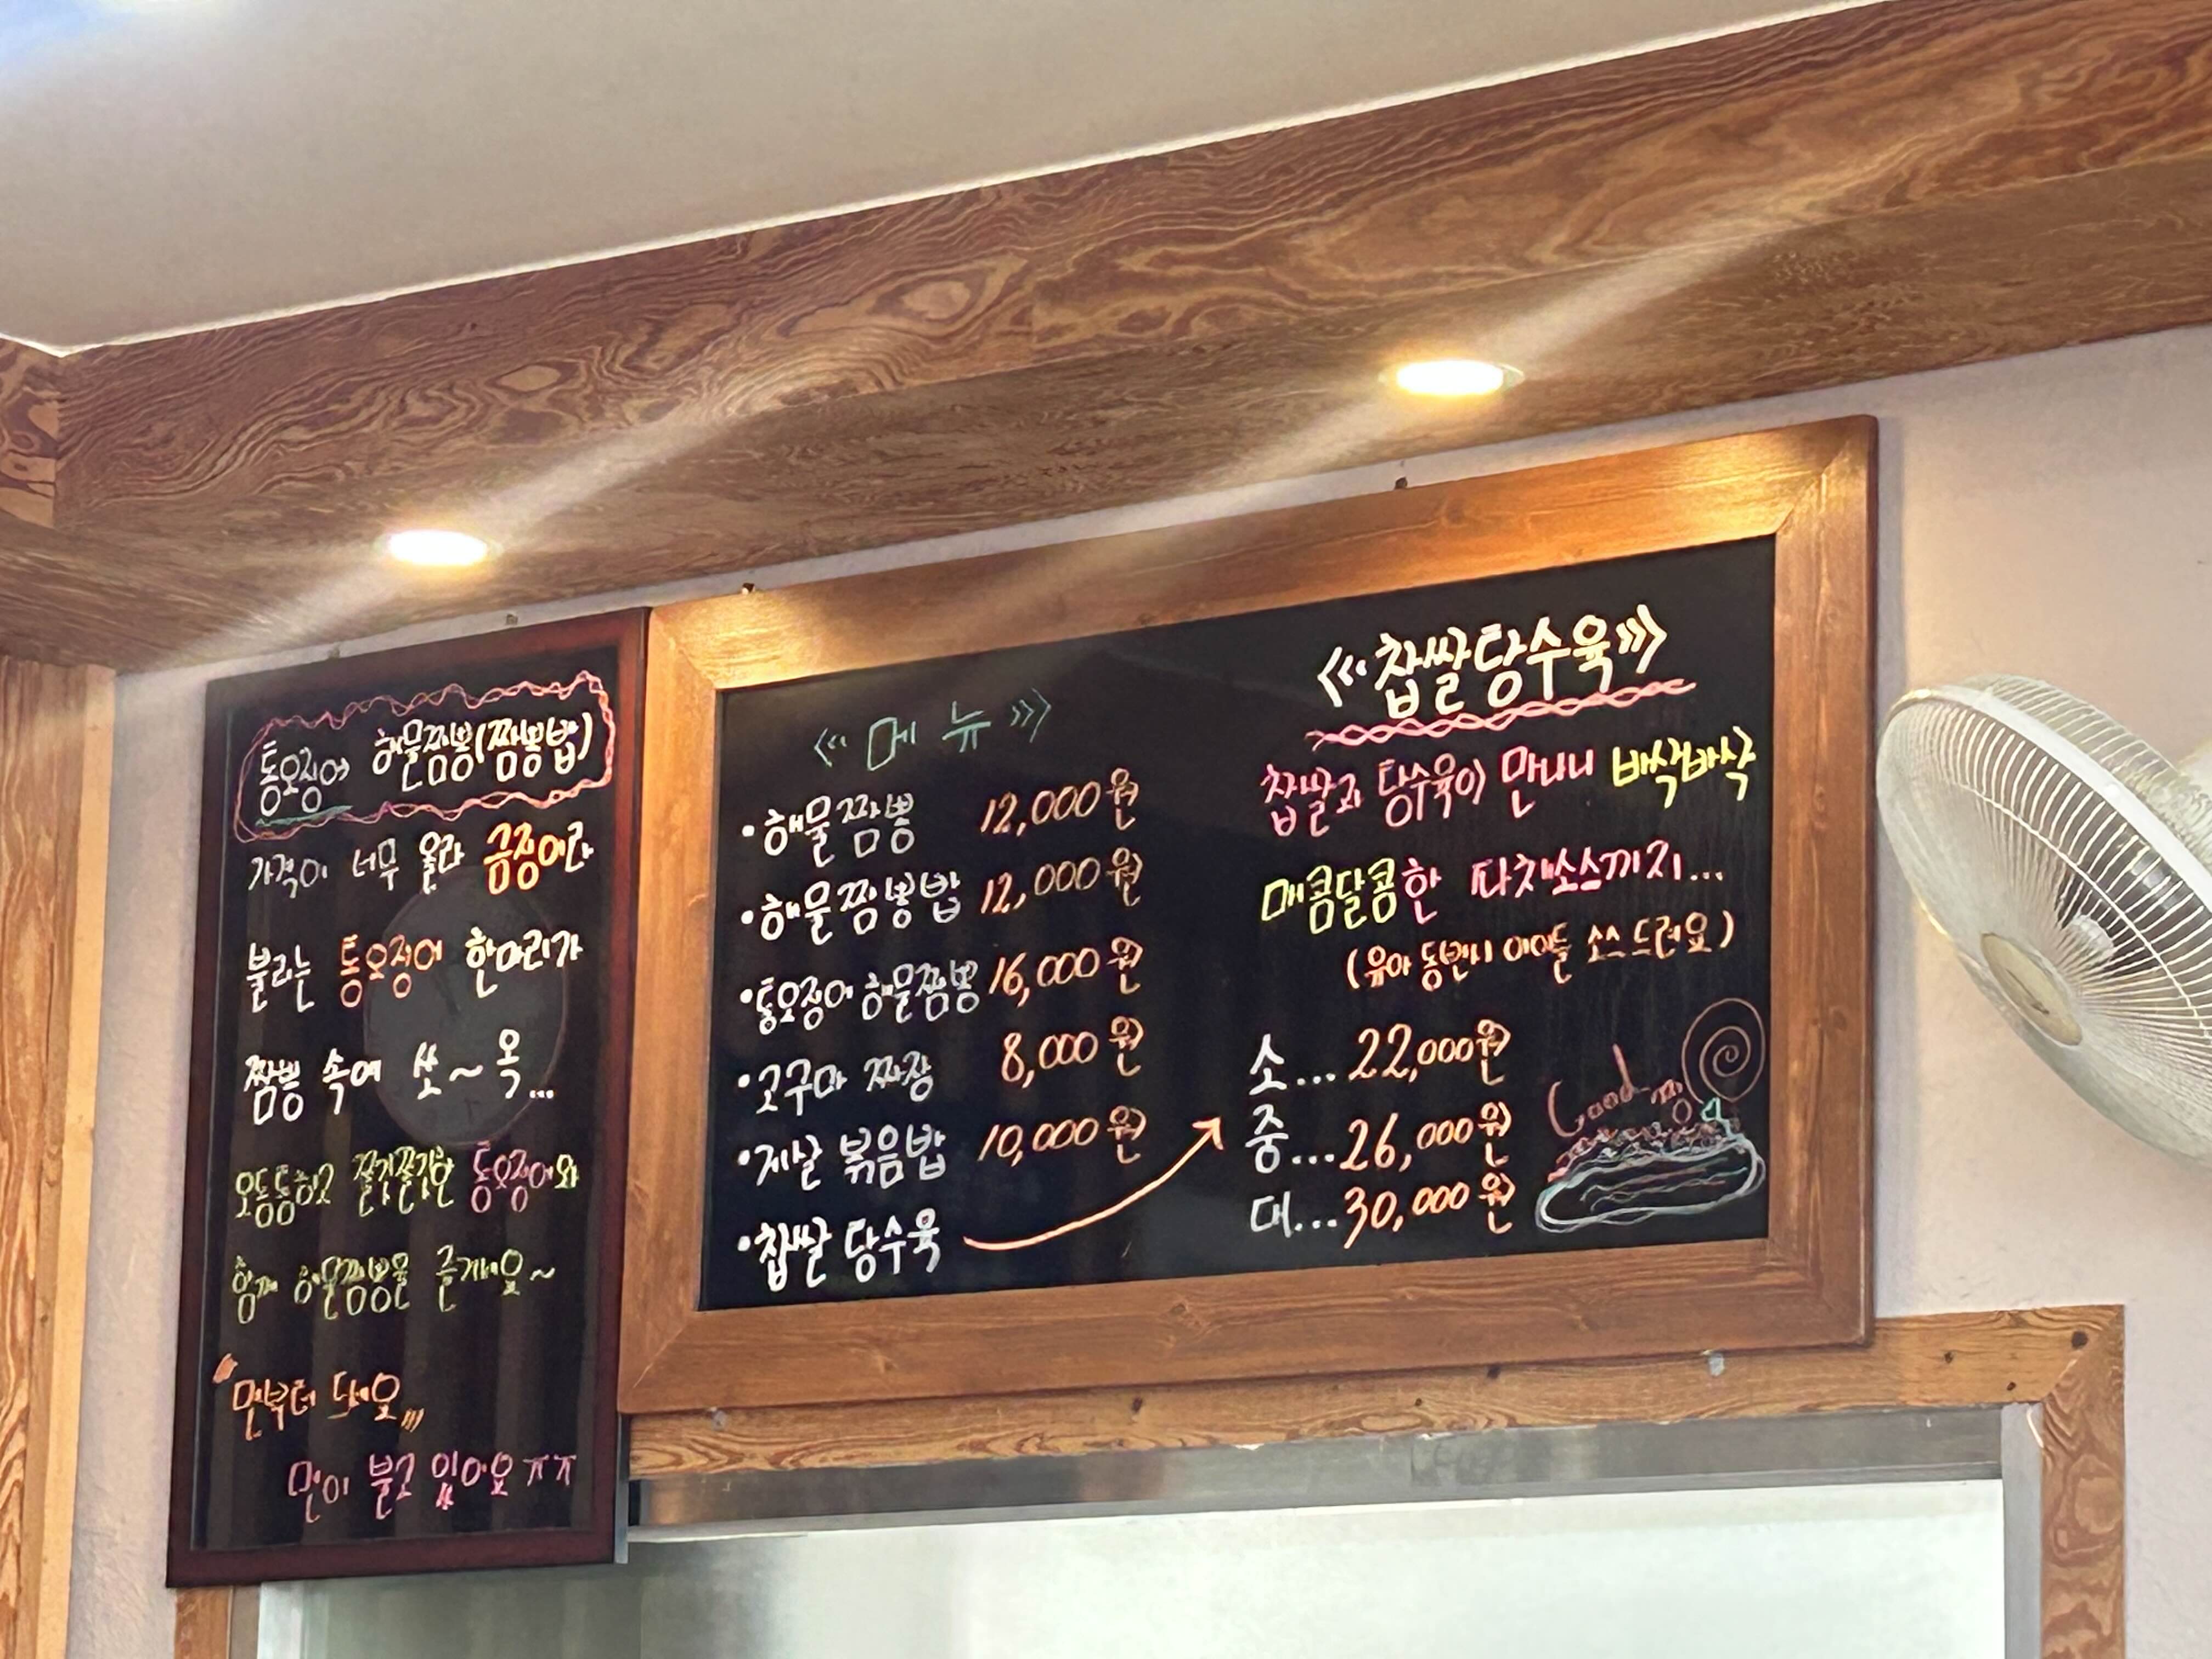 통오징어 해물짬뽕(짬뽕밥)
가격이 너무 올라 금징어라
불리는 통오징어 한마리가
짬뽕 속에 쏘~옥...
오동통하고 쫄깃쫄깃한 통오징어와
함께 해물짬뽕을 즐기세요~
"면부터 드세요,,,
면이 불고 있어요 ㅠㅠ
《 메 뉴 》
·해물짬뽕 12,000원
·해물짬뽕밥 12,000원
·통오징어 해물짬뽕 16,000원
·고구마 짜장 8,000원
·게살 볶음밥 10,000원
·찹쌀 탕수육
《찹쌀탕수육》
찹쌀과 탕수육이 만나니 바삭바삭
매콤달콤한 따차소스까지...
(유아 동반시 아이들 소스 드려요)
소...22,000원
중...26,000원
대...30,000원
Good